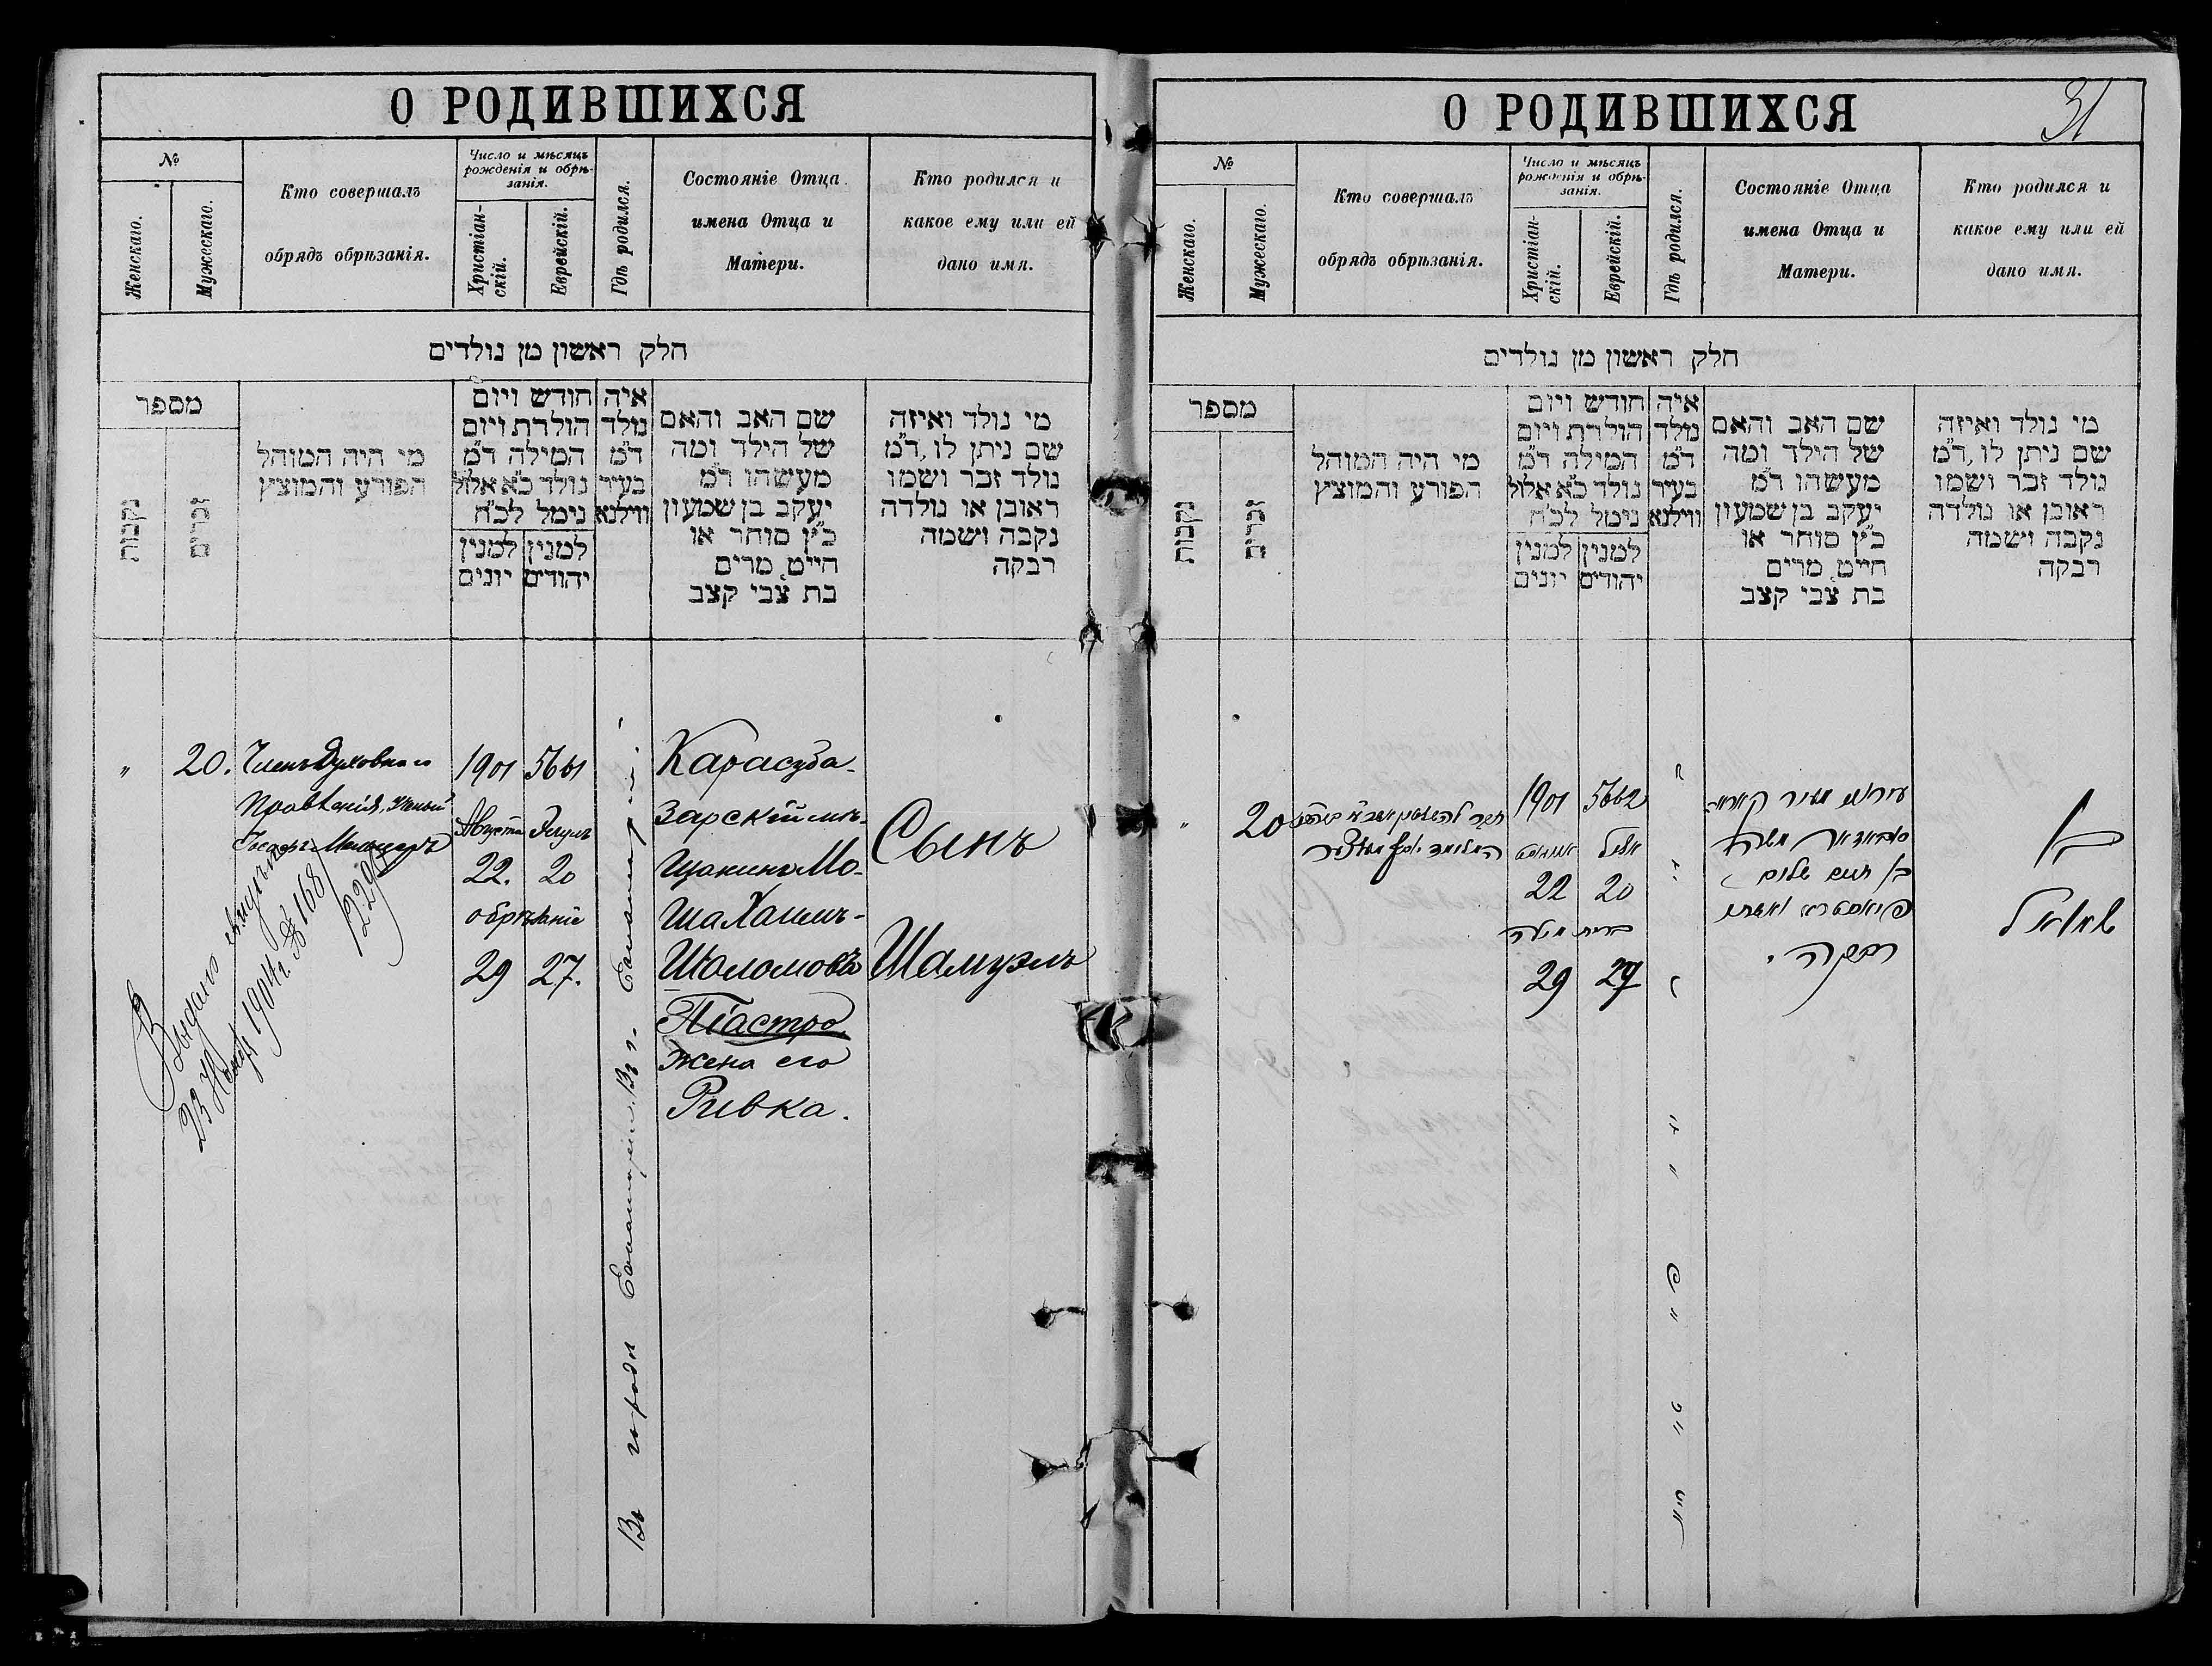 О РОДИВШИХСЯ
№
Женскаго.
Мужескаго.
Кто совершалъ
обрядъ обрѣзанія.
Число и мѣсяцъ
рожденія и обрѣ-
занія.
Христіан-
скій.
Еврейскій.
Гдѣ родился.
Состояніе Отца
имена Отца и
Матери.
Кто родился и
какое ему или ей
дано имя.
חלק ראשון מן נולדים
מספר
נקבות
זכרים
מי היה המוהל
הפורע והמוצץ
חודש ויום
הולדת ויום
המילה ד״מ
נולד כ״א אלול
נימל לכ״ח
למנין
יונים
למנין
יהודים
איה
נולד
ד״מ
בעיר
ווילנא
שם האב והאם
של הילד ומה
מעשהו ד״מ
יעקב בן שמעון
כ״ץ סוחר או
חייט, מרים
בת צבי קצב
מי נולד ואיזה
שם ניתן לו, ד״מ
נולד זכר ושמו
ראובן או נולדה
נקבה ושמה
רבקה
„
20.
Членъ Духовнаго
Правленія, ученый
1901
Августа
22.
обрѣзаніе
29
5661
Элулъ
20
27.
Въ городѣ
Карасуба-
зарскій мѣ-
щанинъ Мо-
ша Хаимъ-
Шоломовъ
Піастро
жена его
Ривка.
Сынъ
Шамуэль
Выдано
1904 г. № 168
О РОДИВШИХСЯ
31
№
Женскаго.
Мужескаго.
Кто совершалъ
обрядъ обрѣзанія.
Число и мѣсяцъ
рожденія и обрѣ-
занія.
Христіан-
скій.
Еврейскій.
Гдѣ родился.
Состояніе Отца
имена Отца и
Матери.
Кто родился и
какое ему или ей
дано имя.
חלק ראשון מן נולדים
מספר
נקבות
זכרים
מי היה המוהל
הפורע והמוצץ
חודש ויום
הולדת ויום
המילה ד״מ
נולד כ״א אלול
נימל לכ״ח
למנין
יונים
למנין
יהודים
איה
נולד
ד״מ
בעיר
ווילנא
שם האב והאם
של הילד ומה
מעשהו ד״מ
יעקב בן שמעון
כ״ץ סוחר או
חייט, מרים
בת צבי קצב
מי נולד ואיזה
שם ניתן לו, ד״מ
נולד זכר ושמו
ראובן או נולדה
נקבה ושמה
רבקה
„
20
1901
אוגוסט
22
ברית מילה
29
5662
אלול
20
27
משה
בן חיים שלום
פיאסטרא ואשתו
רבקה.
בן
שמואל